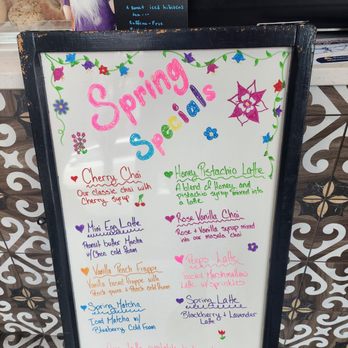 Spring
Specials
Cherry Chai
Our classic chai with
Cherry syrup
Mini Egg Latte
Peanut butter Mocha
w/ Choco cold foam
Vanilla Peach Frappe
Vanilla based Frappe with
Peach puree & Peach cold foam
Spring Matcha
Iced Matcha w/
Blueberry Cold Foam
Honey Pistachio Latte
A blend of Honey and
pistachio syrup
a latte
Rose Vanilla Chai
Rose & Vanilla syrup mixed
into our masala chai
Peeps Latte
Toasted Marshmallow
Latte w/ Sprinkles
Spring Latte
Blackberry & Lavender
Latte
iced hibiscus
tea
Caffeine-Free